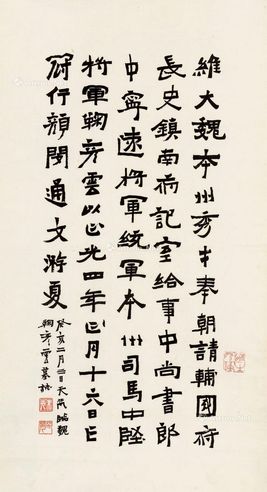 維大魏本州秀才奉朝請輔國府
長史鎮南府記室給事中尚書郎
中寧遠將軍統軍本州司馬中堅
將軍鞠彥雲以正光四年正月十六日亡
符行顏閔通文游夏
癸亥二月 日 臨魏
鞠彥雲墓誌